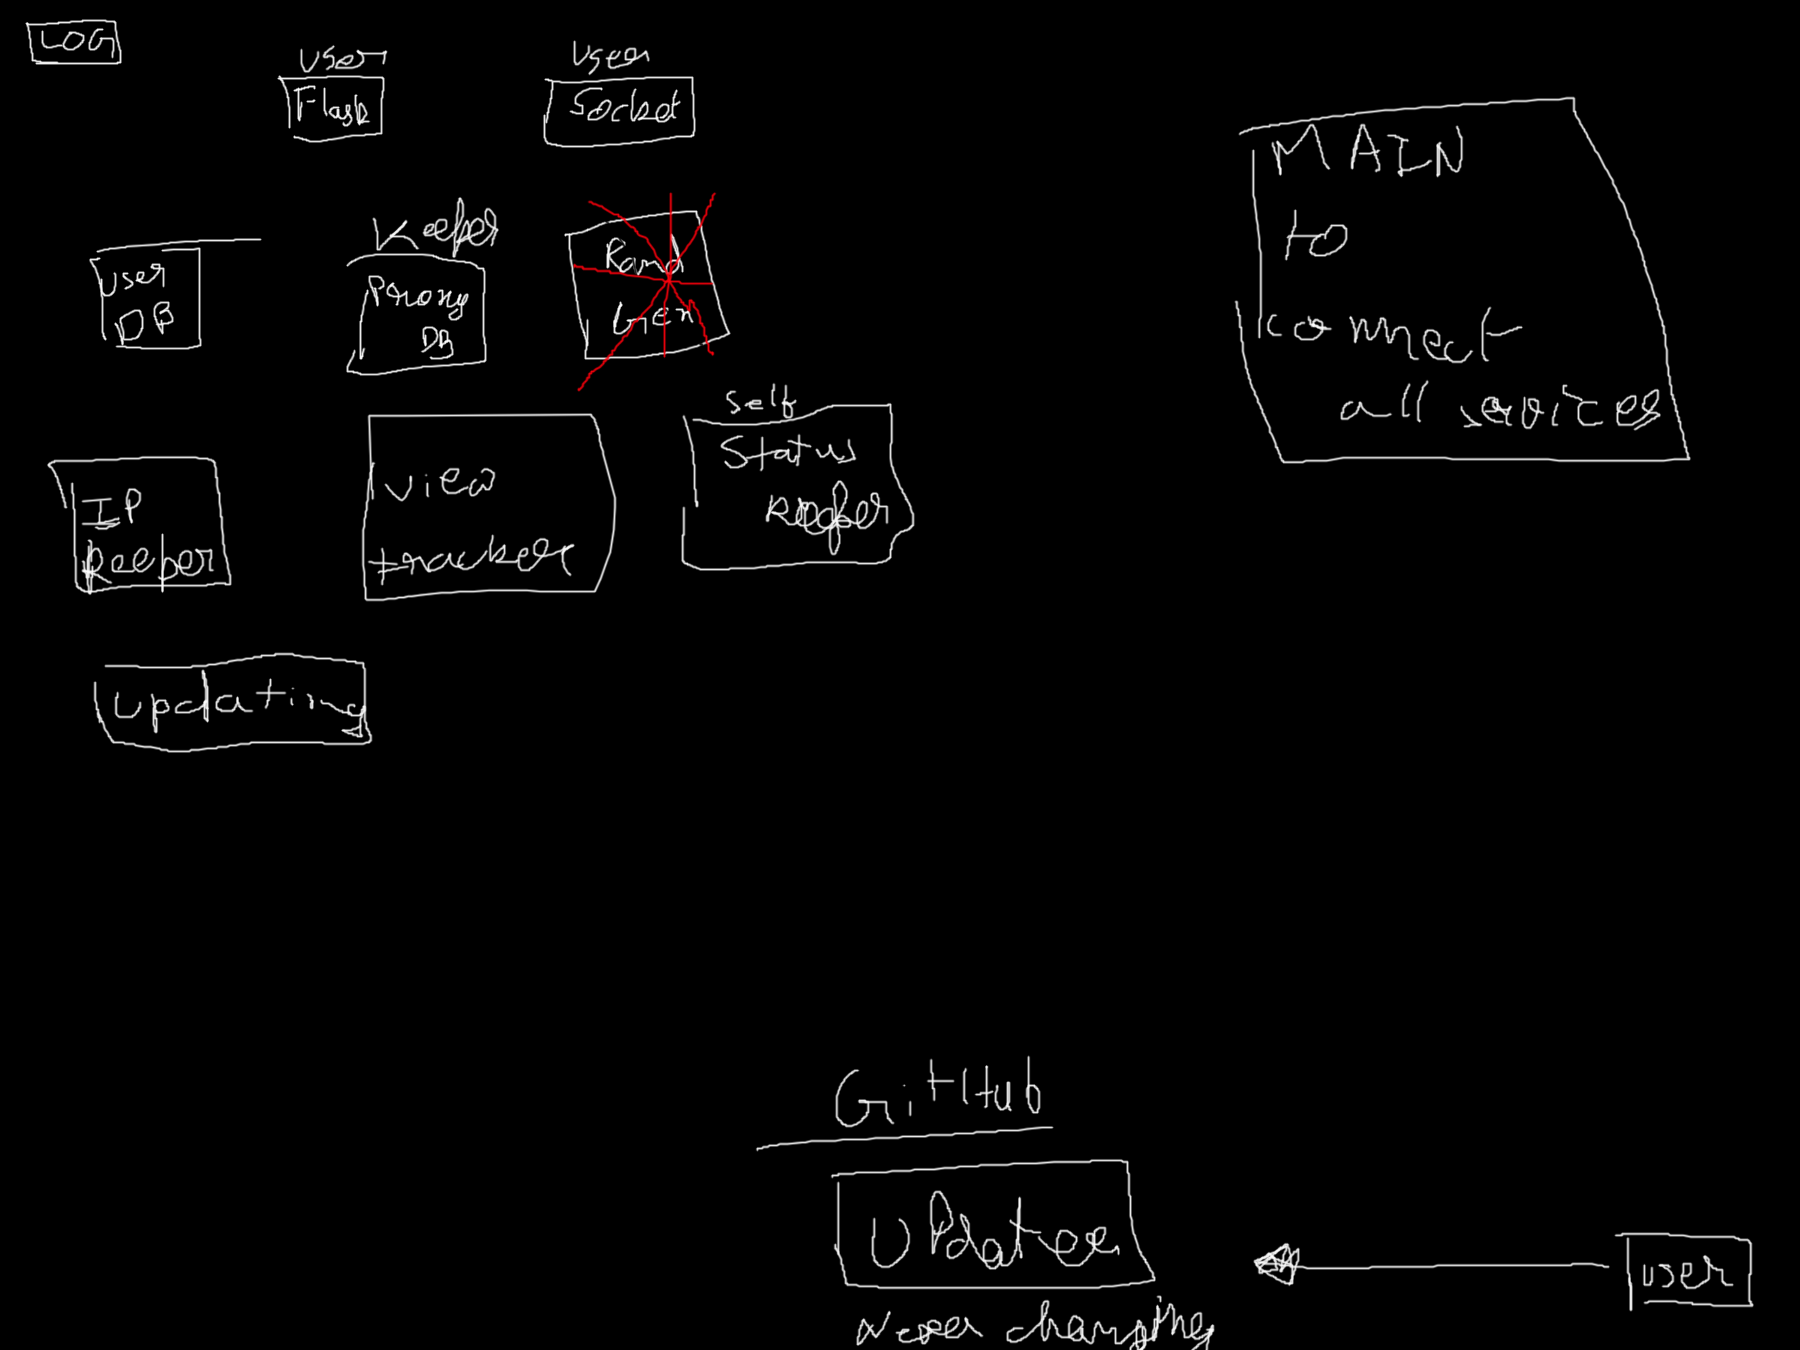 LOG
User
Flask
User
Socket
MAIN
to
connect
all services
User
DB
Keeper
Proxy
DB
Rand
Gen
IP
Keeper
View
tracker
Self
Status
Keeper
Updating
GitHub
Updater
Never changing
User